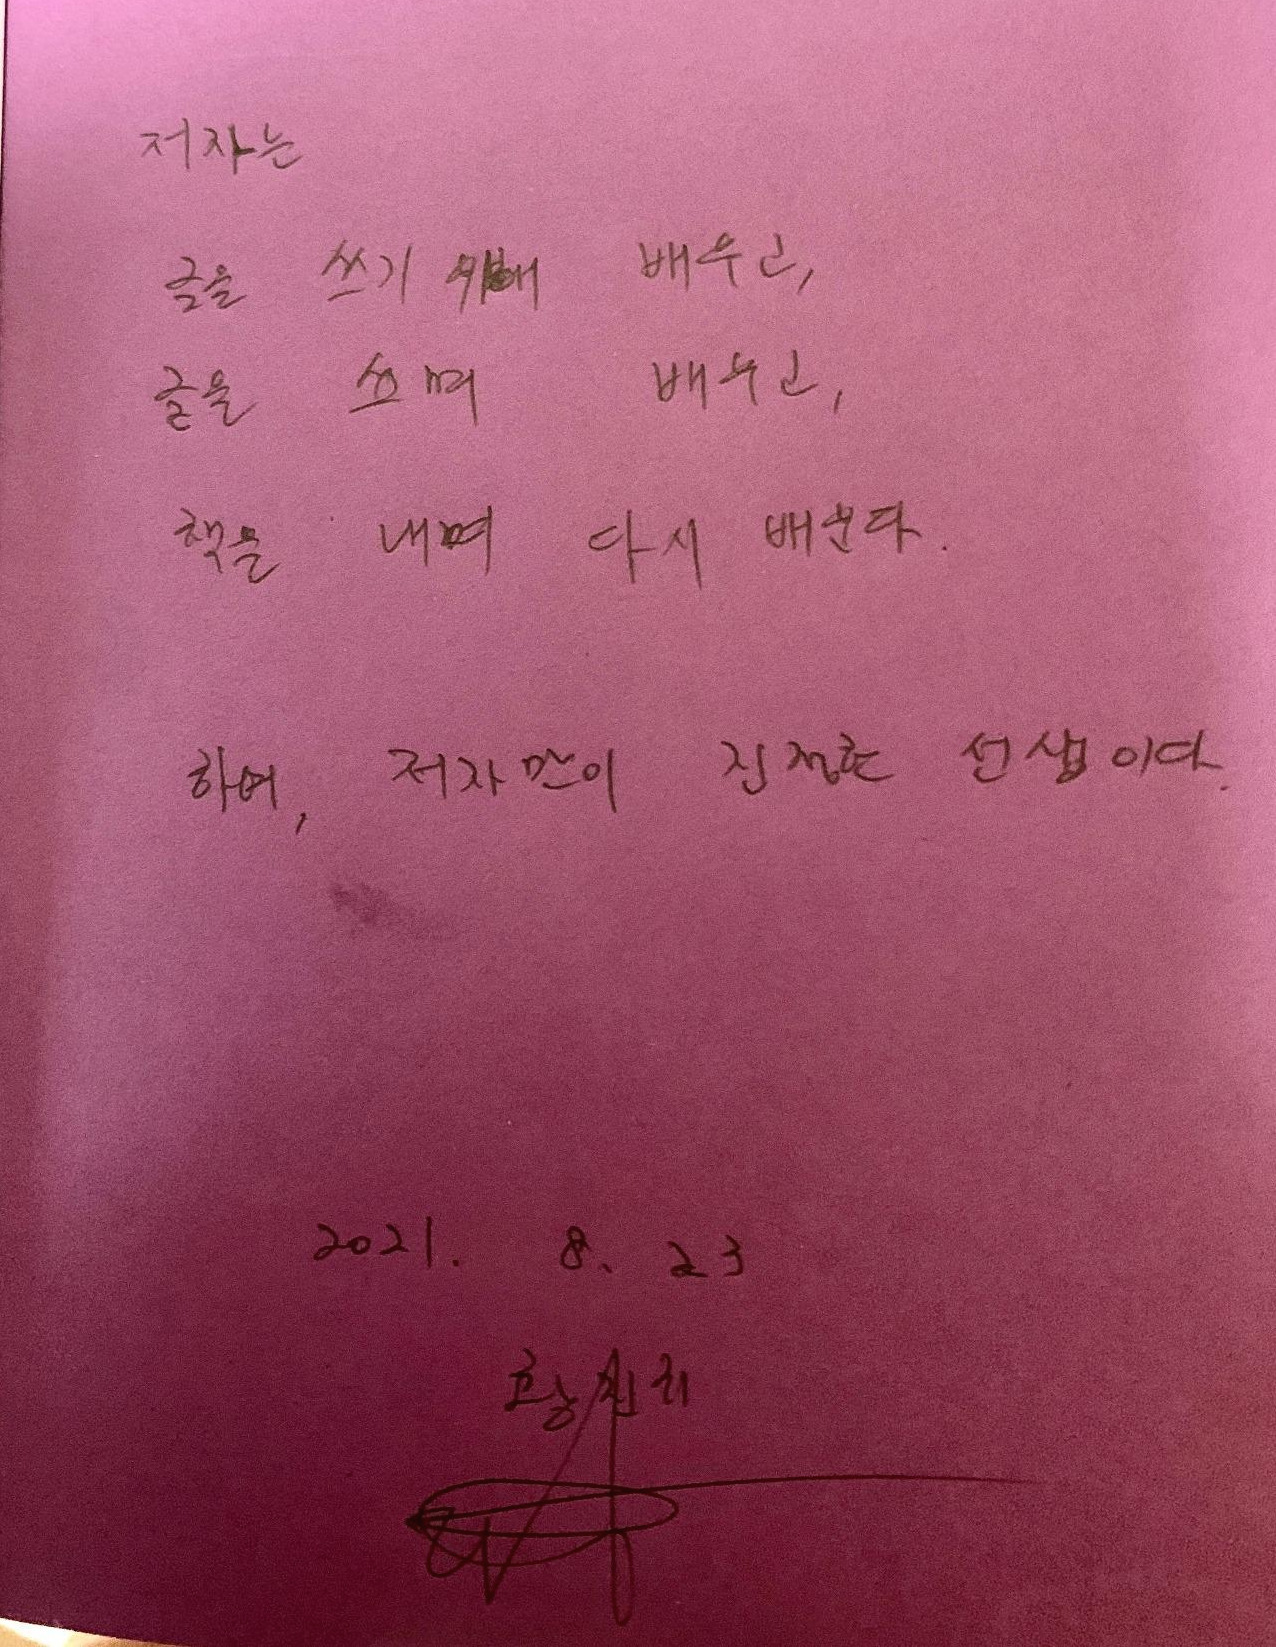 저자는
글을 쓰기 위해 배우고,
글을 쓰며 배우고,
책을 내며 다시 배운다.
하여, 저자만이 진정한 선생이다.
2021. 8. 23
황진희